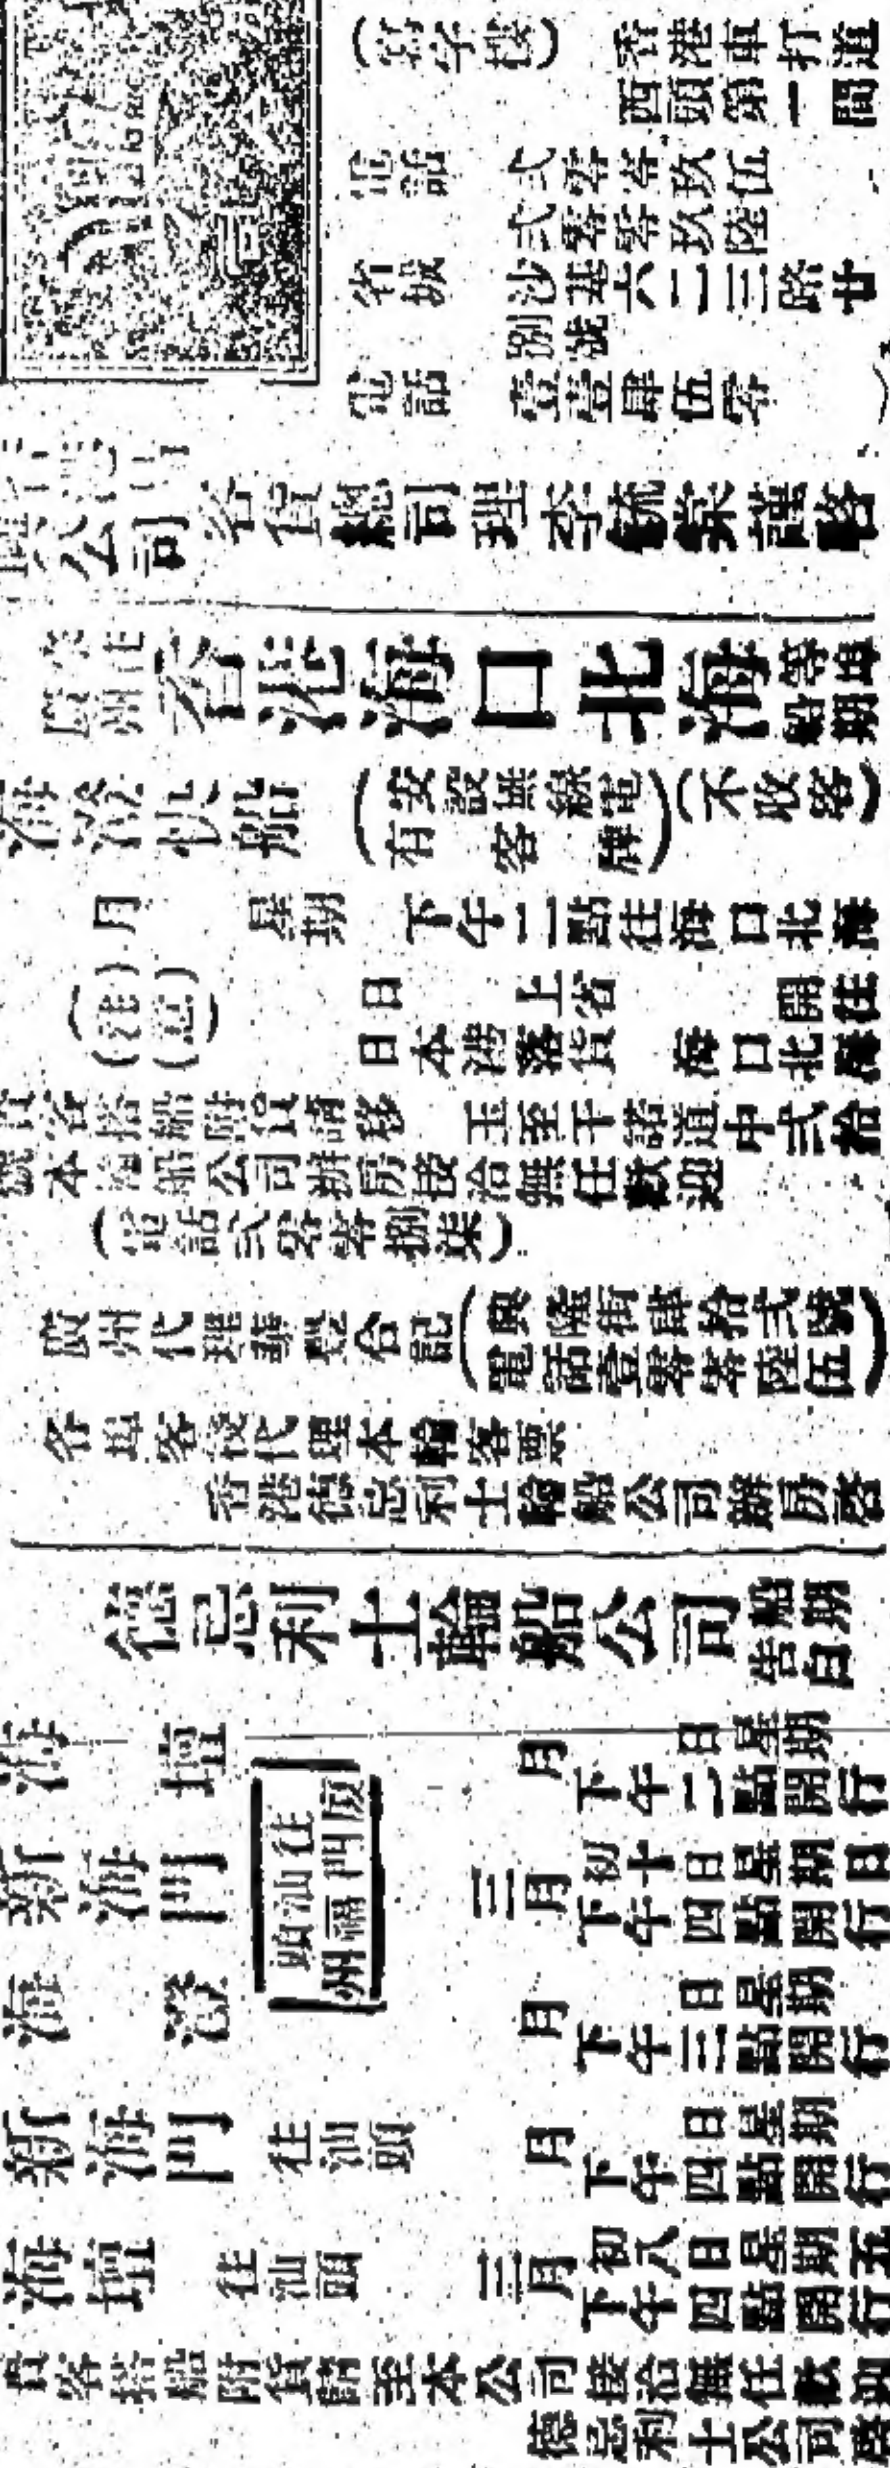 (寫字樓) 香港車打道
西頭第一間
電話 弍零零玖伍
弍零零玖陸
省掞 沙基六二三路廿
捌號
電話 壹壹肆伍零
公司客貨總司理李毓棠謹啓
廣州往香港海口北海等埠船期
海澄快船(安設無線電有客牌)(不收客)
月 星期 下午二點往海口北海
(港) 日 上省 開往
日本港落貨 海口北海
貴客搭船附貨請移 玉至干諾道中弍拾
號本輪船公司辦房接洽無任歡迎
(電話弍零零捌柒)
廣州代理華豐合記(興隆街肆拾弍號
電話壹零零陸伍)
各埠客棧代理本輪客票
香港德忌利士輪船公司辦房啓
德忌利士輪船公司船期告白
海壇 月 日星期
下午二點開行
新海門 三月初十日星期日
下午四點開行
往汕頭
廈門福州
海澄 月 日星期
下午三點開行
新海門 往汕頭 月 日星期
下午四點開行
海壇 往汕頭 三月初八日星期五
下午四點開行
貴客搭船附貨請至本公司接洽無任歡迎
德忌利士公司啓